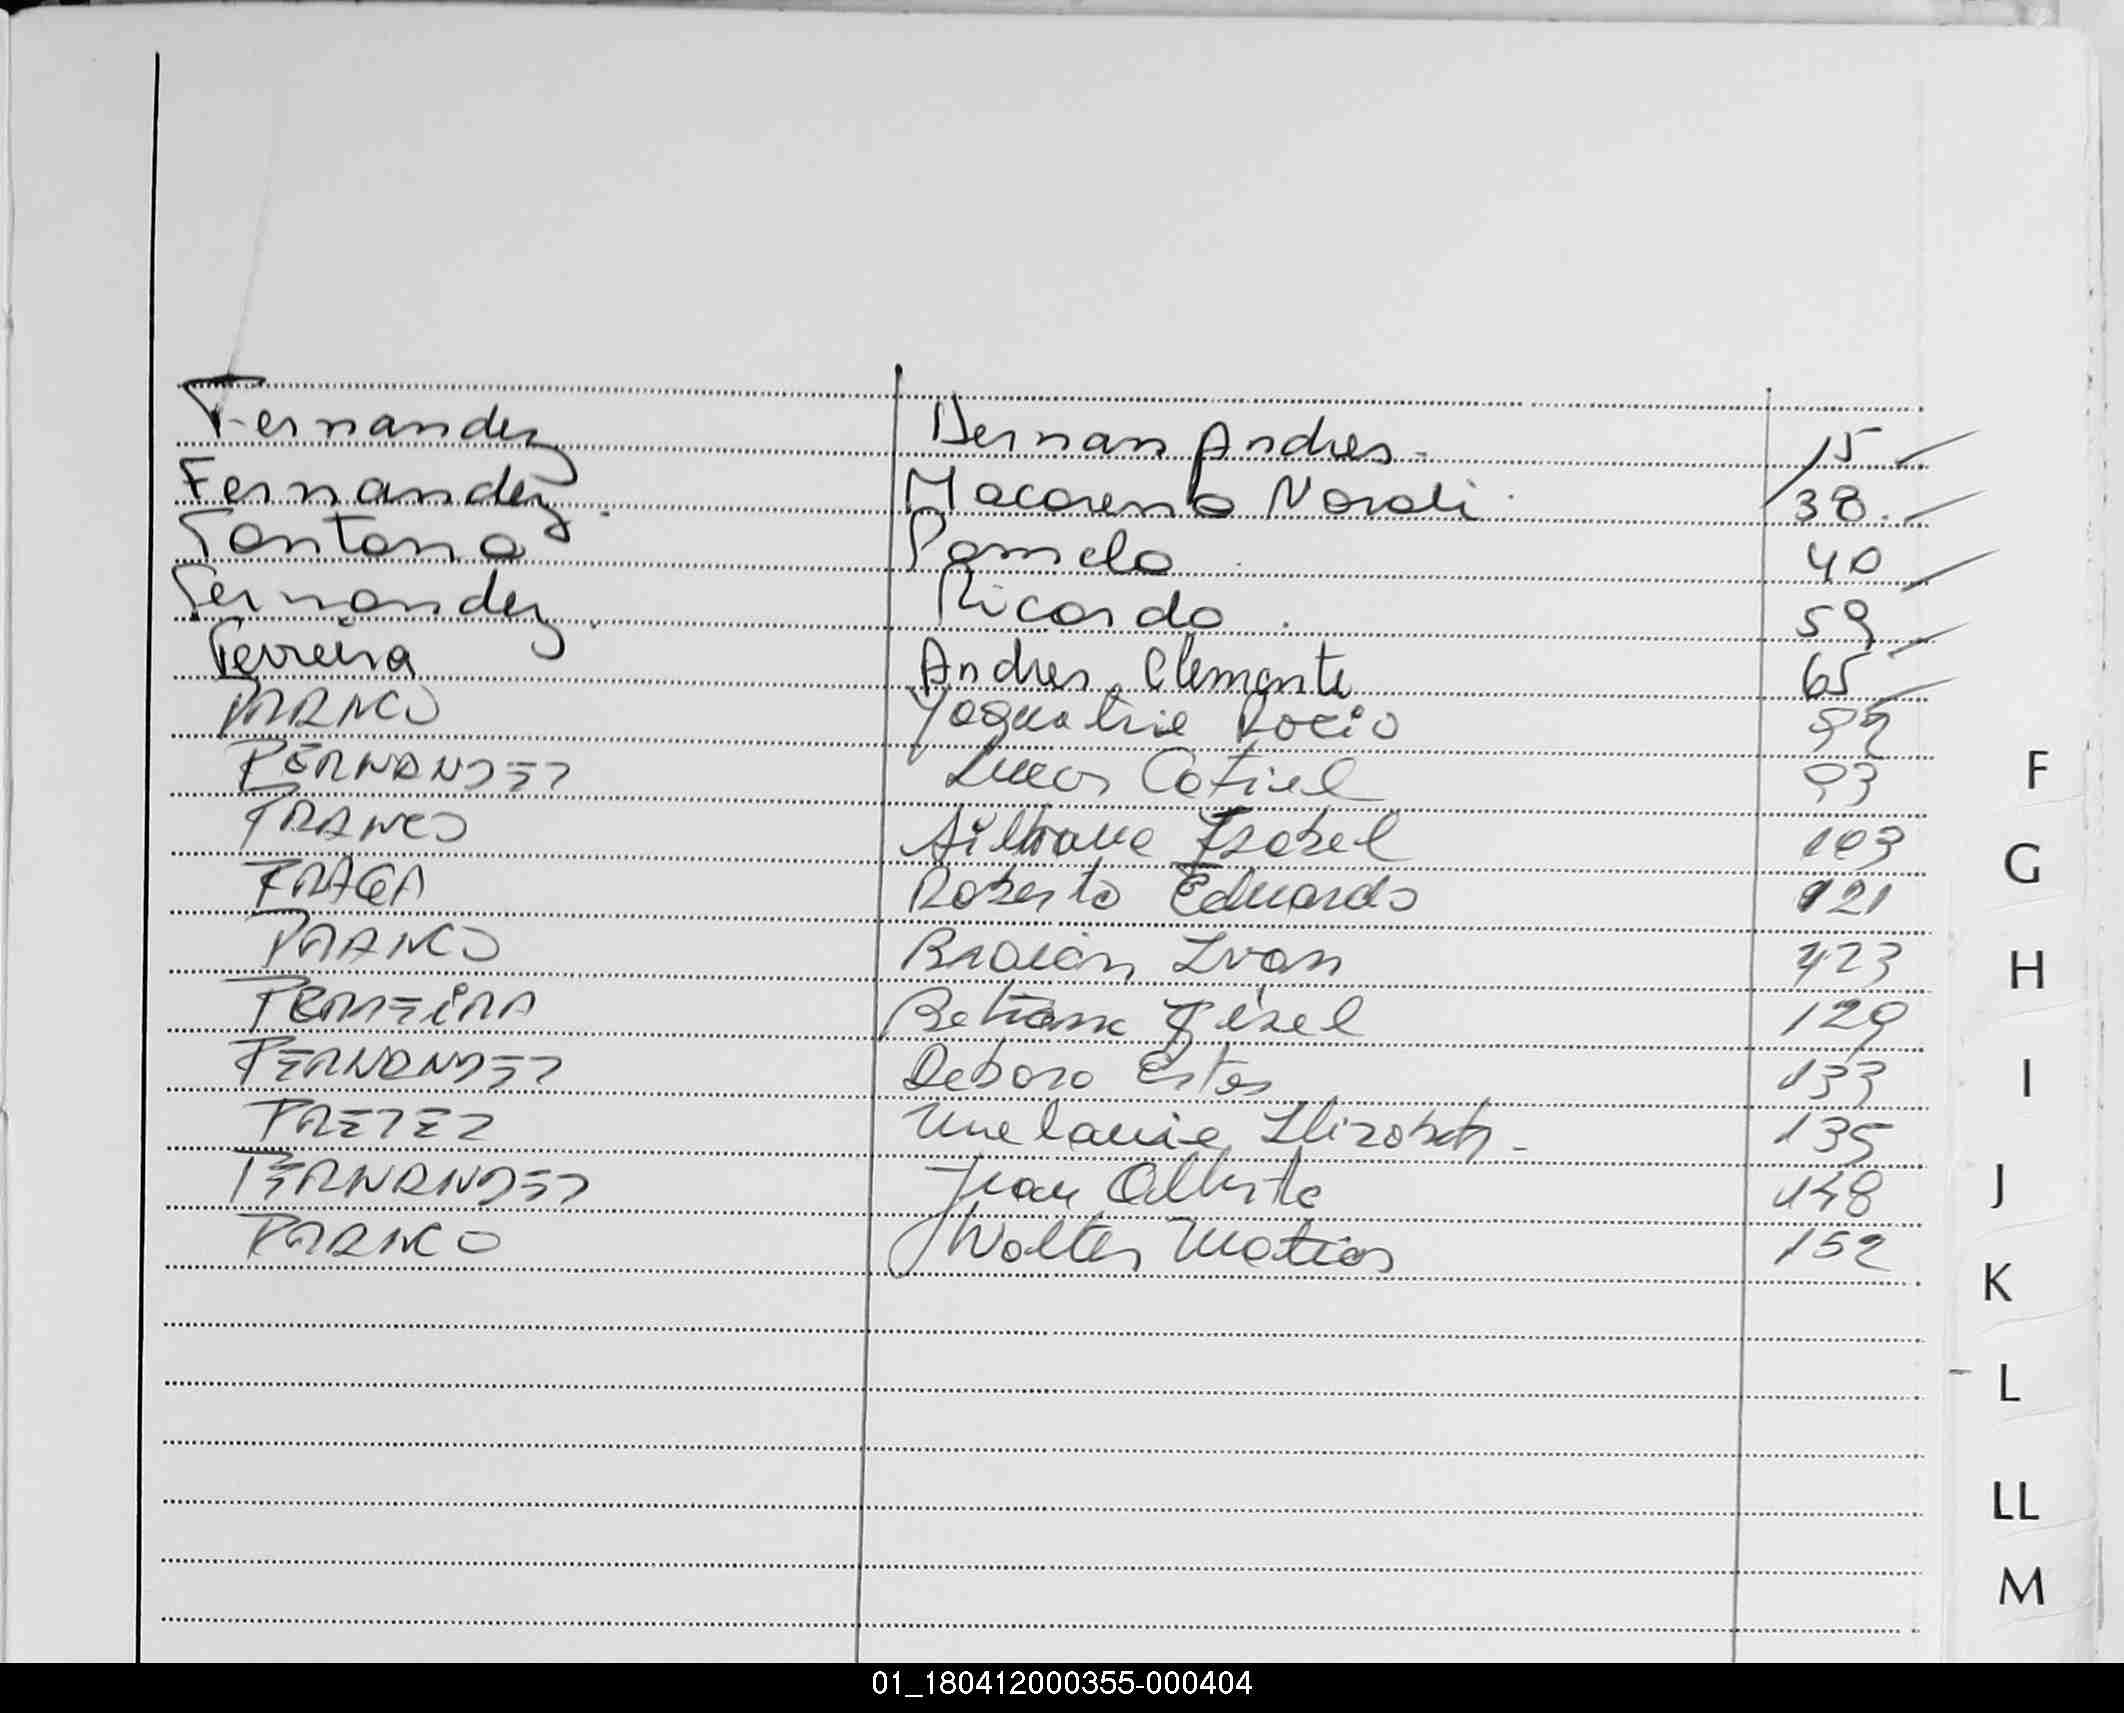 Fernandez Hernan Andres. 15
Fernandez. Macarena Norali 38.
Fontana Pamela 40
Fernandez. Ricardo. 59
Ferreira Andres Clemente 65
FRANCO Rocio
FERNANDEZ Lucas Catiel 93
FRANCO Isabel 103
FRAGA Roberto Eduardo 121
FRANCO Braian Ivan 123
FERREIRA Betiana Gisel 129
FERNANDEZ Debora Ester 133
135
FERNANDEZ Juan Alberto 148
FRANCO Walter Matias 152
F
G
H
I
J
K
L
LL
M
01_180412000355-000404